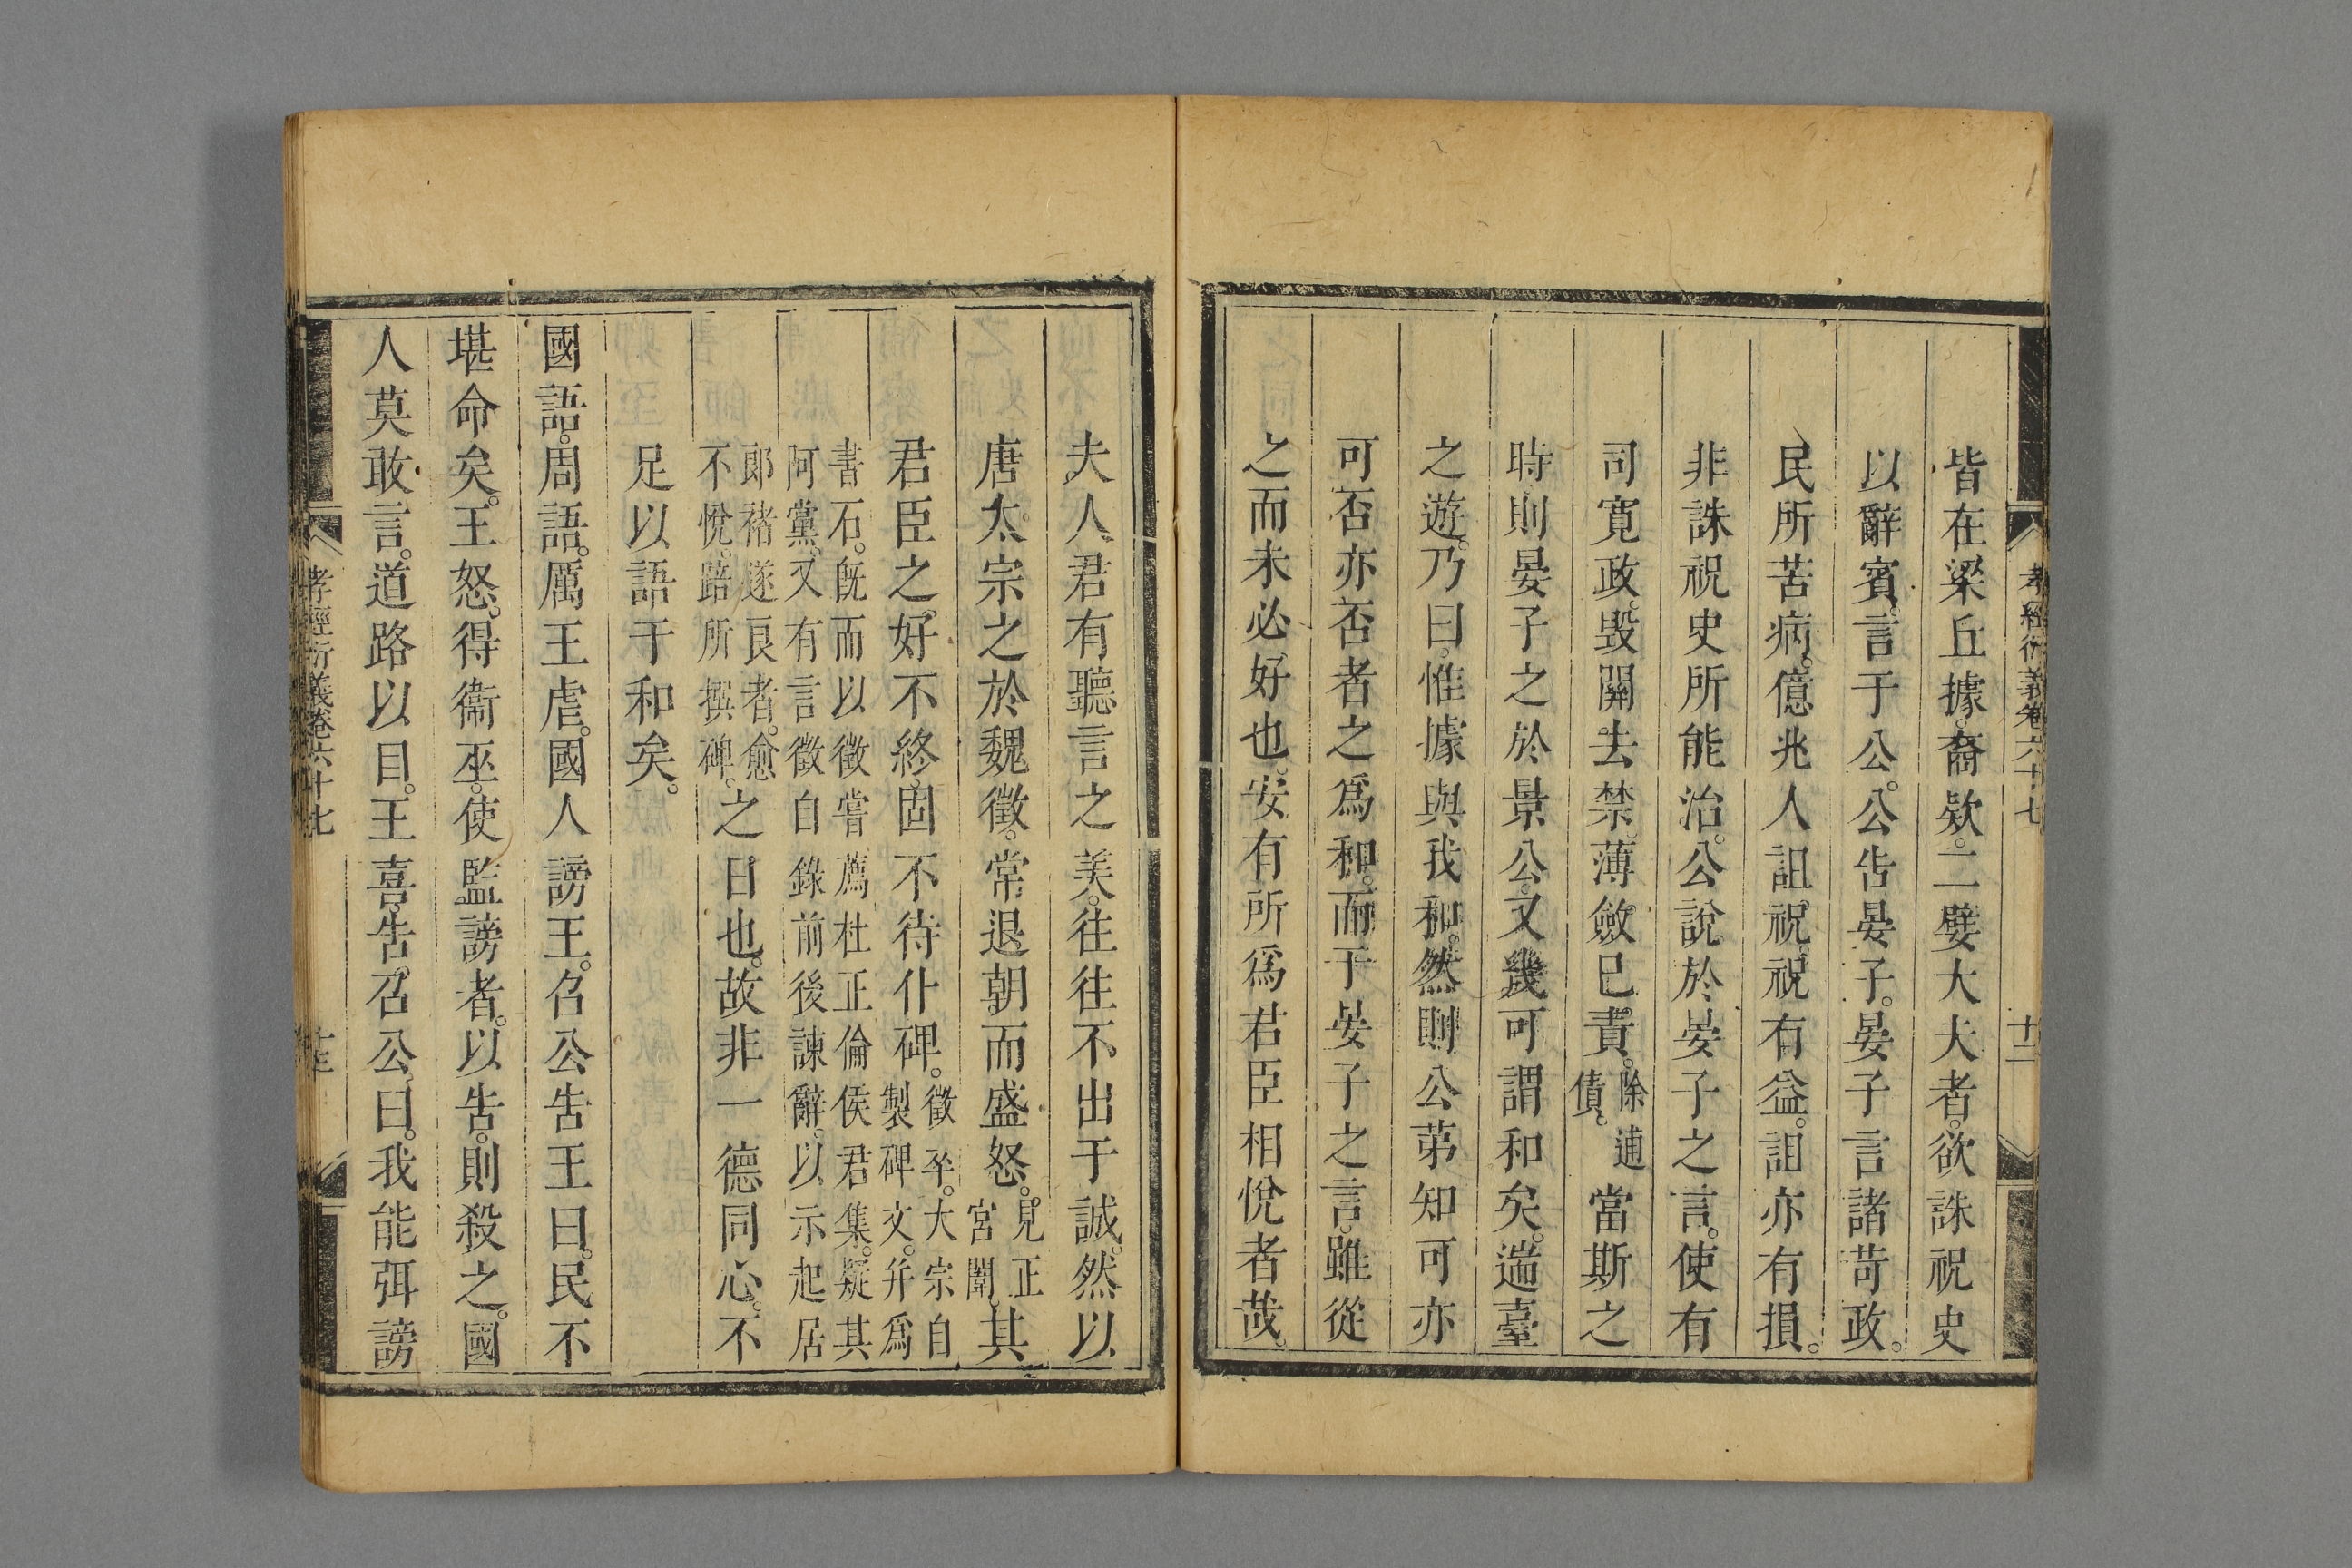 孝經衍義卷六十七
十二
皆在梁丘據。裔欵。二嬖大夫者。欲誅祝史
以辭賓。言于公。公告晏子。晏子言諸苛政。
民所苦病。億兆人詛。祝。祝有益。詛亦有損。
非誅祝史所能治。公說於晏子之言。使有
司寬政。毀關。去禁。薄斂。已責。除逋債。當斯之
時。則晏子之於景公。又幾可謂和矣。遄臺
之遊。乃曰。惟據與我和。然則公第知可亦
可。否亦否者之爲和。而于晏子之言。雖從
之而未必好也。安有所爲君臣相悅者哉。
夫人君有聽言之美。往往不出于誠。然以
唐太宗之於魏徵。常退朝而盛怒。見正宮闈。其
君臣之好不終。固不待仆碑。徵卒。大宗自製碑文。并爲
書石。旣而以徵嘗薦杜正倫侯君集。疑其
阿黨。又有言徵自錄前後諫辭。以示起居
郞褚遂良者。愈不悅。踣所撰碑。之日也。故非一德同心。不
足以語于和矣。
國語。周語。厲王虐。國人謗王。召公告王曰。民不
堪命矣。王怒。得衞巫。使監謗者。以告。則殺之。國
人莫敢言。道路以目。王喜。告召公曰。我能弭謗
孝經衍義卷六十七